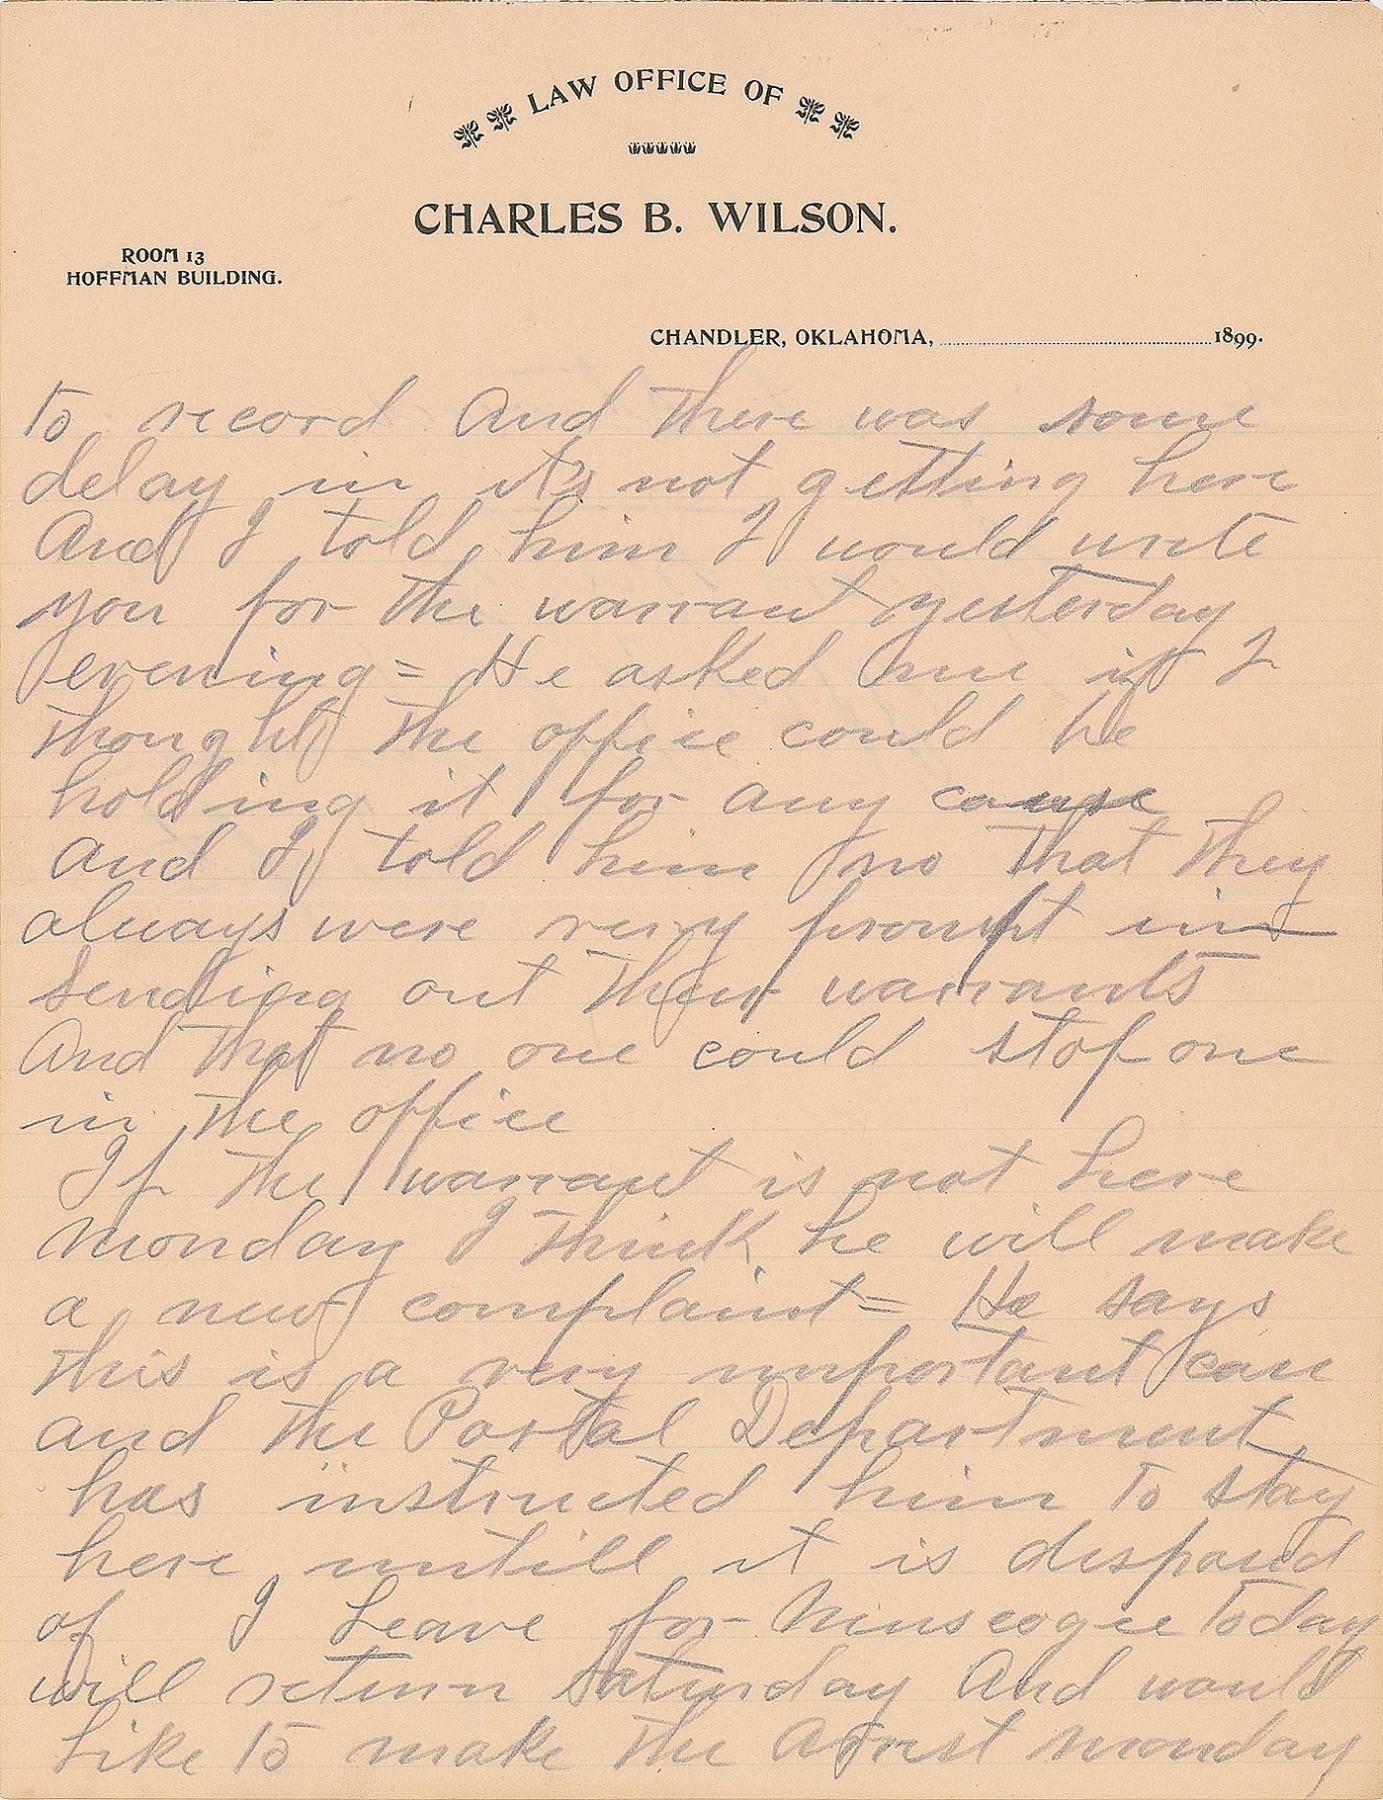 LAW OFFICE OF
CHARLES B. WILSON.
ROOM 13
HOFFMAN BUILDING.
CHANDLER, OKLAHOMA, 1899.
to record And there was some
delay in it's not getting here
And I told him I would write
you for the warrant yesterday
evening = He asked me if I
thought the office could be
holding it for any cause
and I told him no that they
always were very prompt in
sending out their warrants
And that no one could stop one
in the office
If the warrant is not here
Monday I think he will make
a new complaint = He says
this is a very important case
and the Postal Department
has instructed him to stay
here untill it is disposed
of I Leave for Muscogee Today
will return Saturday And would
Like to make the Arrest Monday